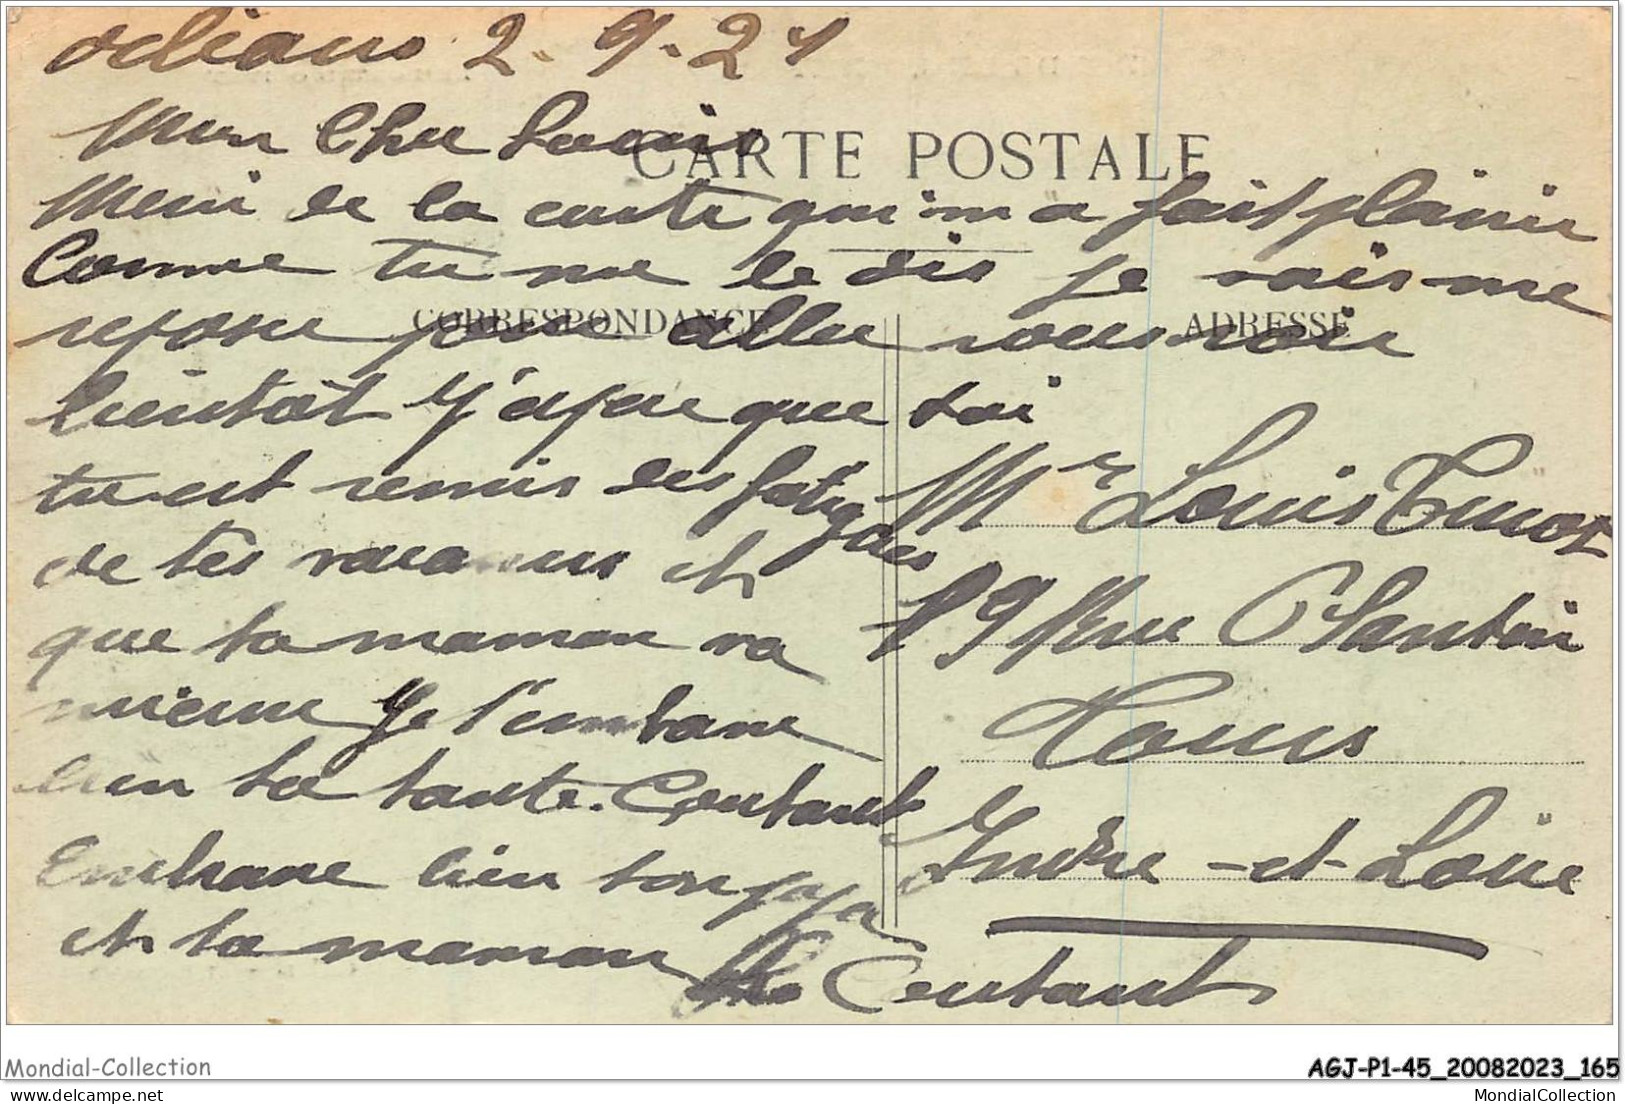 Orléans 2. 9. 21
Mon Cher Louis
CARTE POSTALE
Merci de la carte qui m a fait plaisir
Comme tu me le dis je vais me
CORRESPONDANCE
ADRESSE
repose pour aller vous voir
bientôt J'espere que toi
tu est remis des fatigues
de tes vacances et
que ta maman va
mieux Je t'embrasse
bien ta tante. Coutant
Embrasse bien ton papa
et ta maman
Coutant
Mr Louis
19 Rue Plantin
Tours
Indre-et-Loire
Mondial-Collection
AGJ-P1-45_20082023_165
delcampe.net
MondialCollection